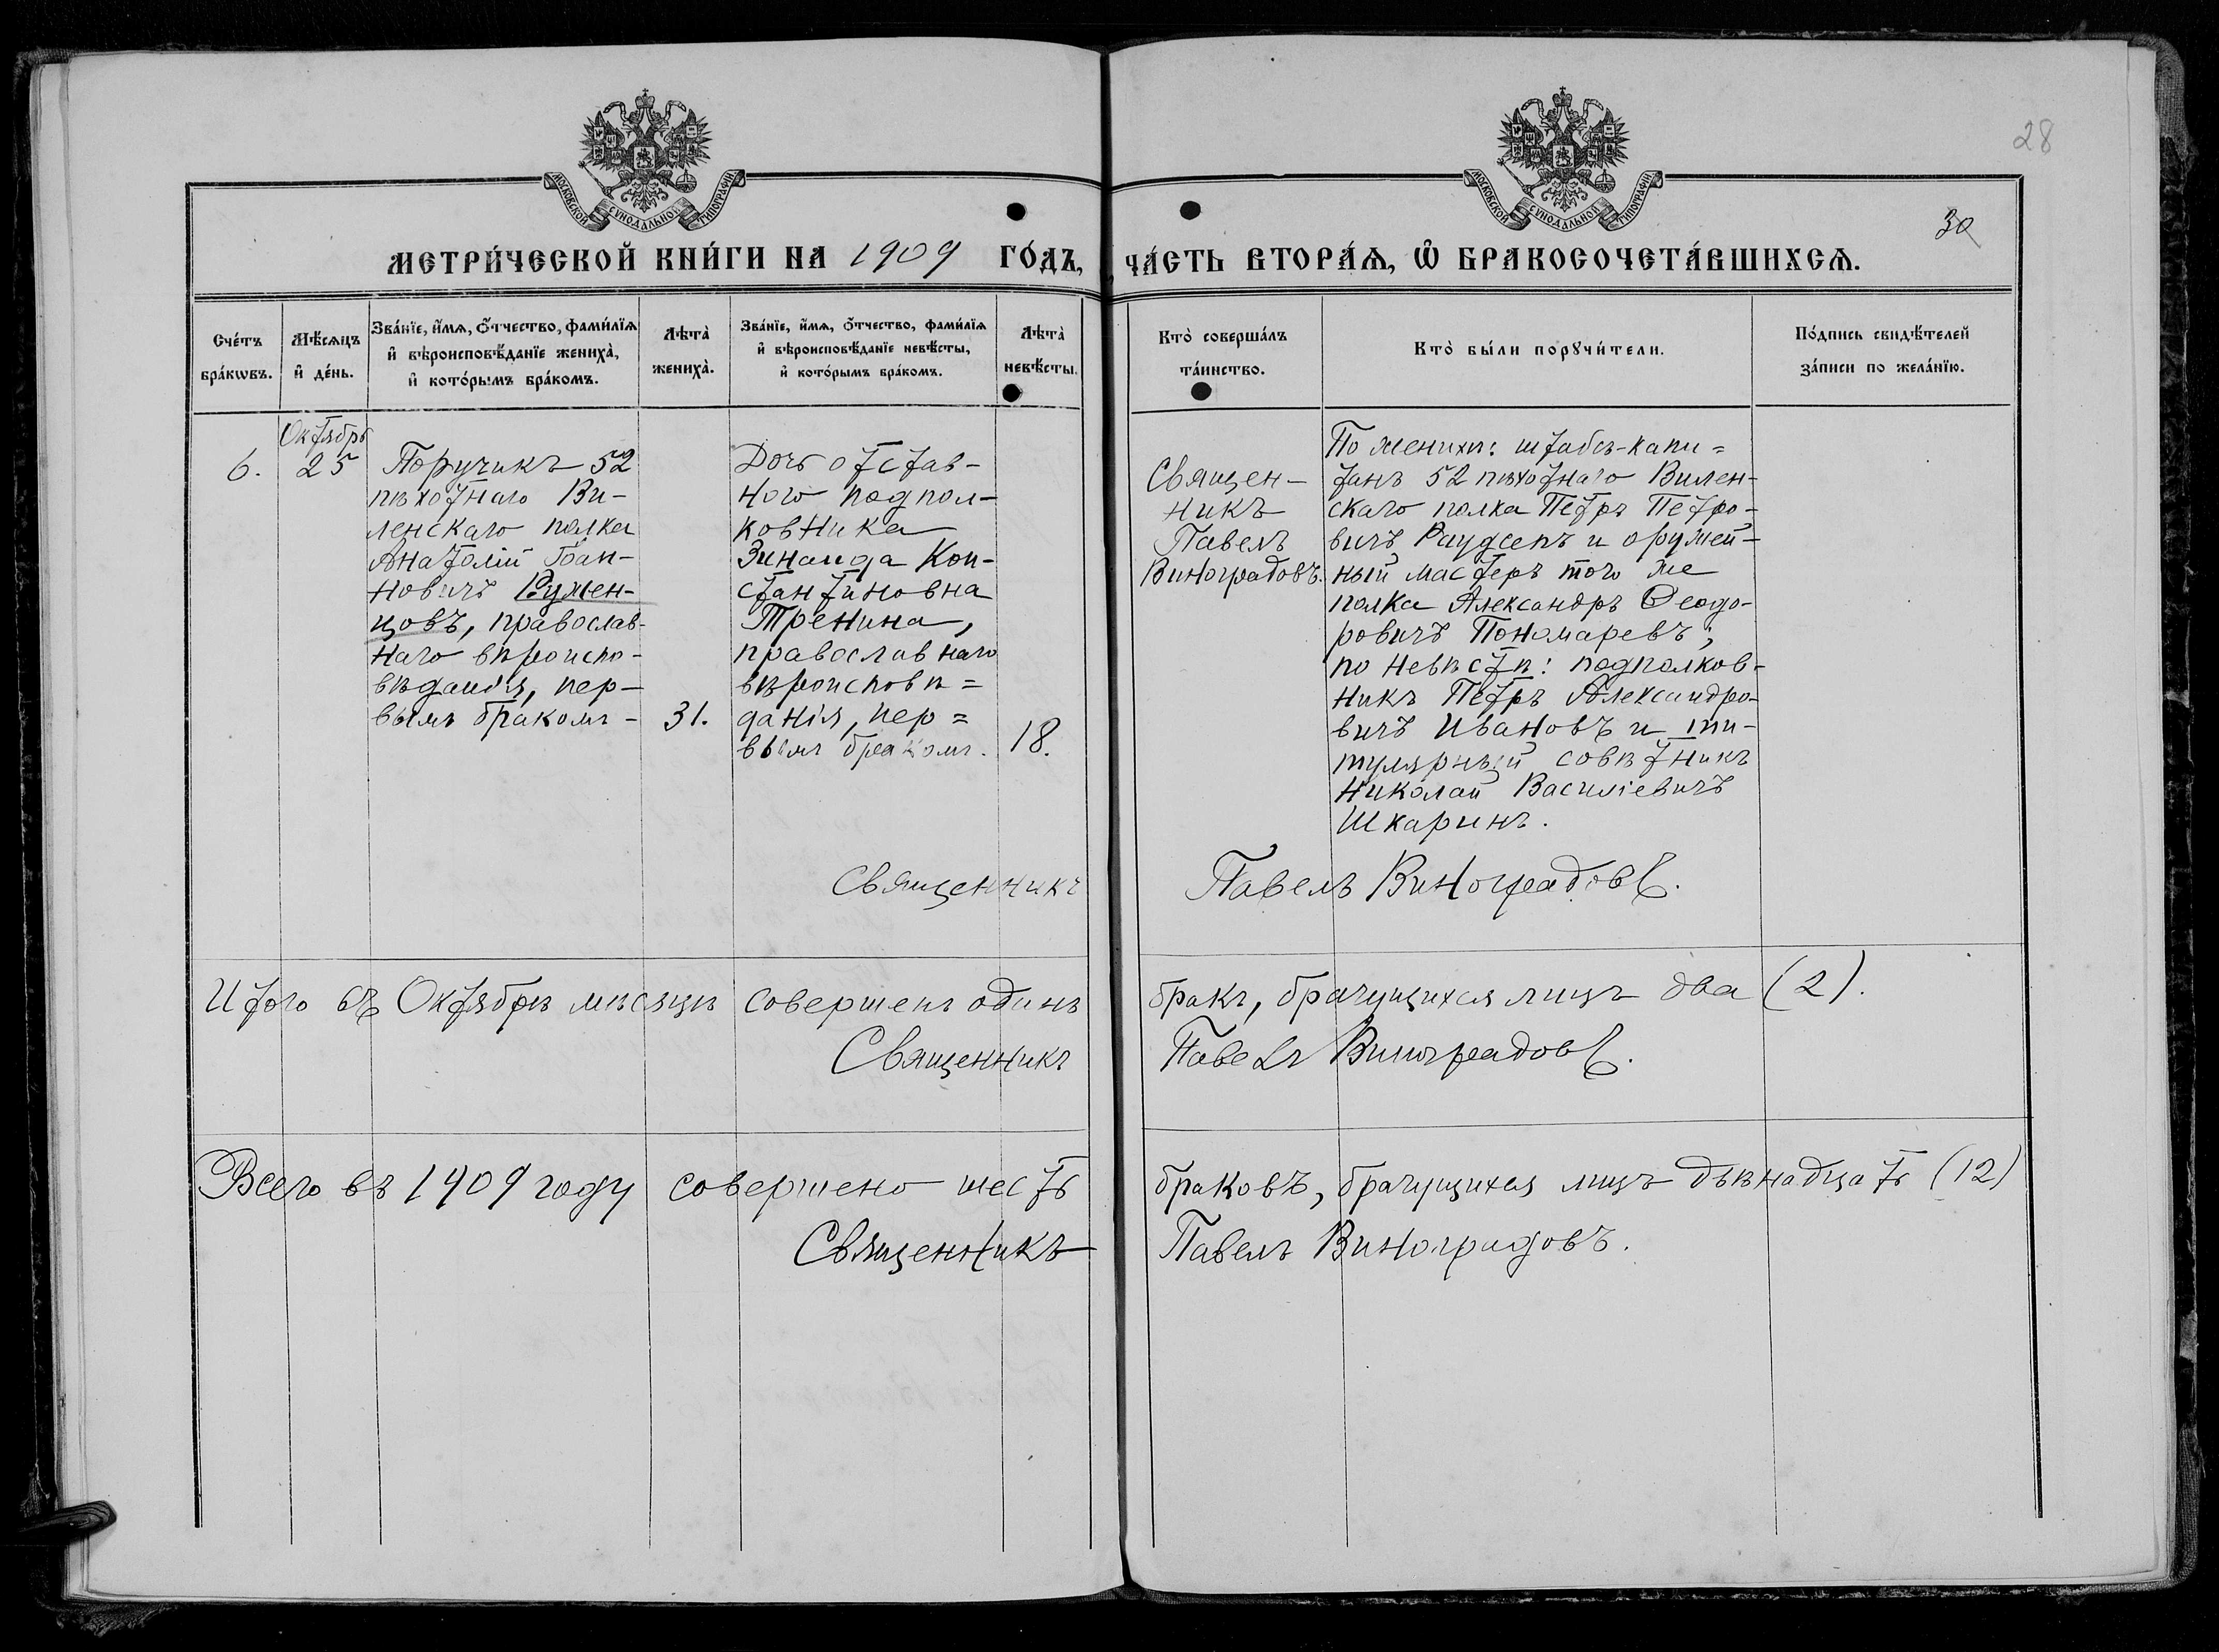 28
МОСКОВСКОЙ СѴНОДАЛЬНОЙ ТИПОГРАФІИ
МОСКОВСКОЙ СѴНОДАЛЬНОЙ ТИПОГРАФІИ
30
МЕТРИ́ЧЕСКОЙ КНИ́ГИ НА 1909 ГО́ДЪ, ЧА́СТЬ ВТОРА́Ѧ, Ѡ҆ БРАКОСОЧЕТА́ВШИХСѦ.
Сче́тъ
бра́кѡвъ.
Мѣ́сѧцъ
и҆ де́нь.
Зва́нїе, и҆́мѧ, ѻ҆́тчество, фами́лїѧ
и҆ вѣроисповѣ́данїе жениха̀,
и҆ кото́рымъ бра́комъ.
Лѣта̀
жениха̀.
Зва́нїе, и҆́мѧ, ѻ҆́тчество, фами́лїѧ
и҆ вѣроисповѣ́данїе невѣ́сты,
и҆ кото́рымъ бра́комъ.
Лѣта̀
невѣ́сты.
Кто̀ соверша́лъ
та́инство.
Кто̀ бы́ли порꙋчи́тели.
По́дпись свидѣ́телей
за́писи по жела́нїю.
6.
Октябрь
25
Поручикъ 52
пѣхотнаго Ви-
ленскаго полка
Анатолій Іоан-
новичъ Румен-
цовъ, православ-
наго вѣроиспо-
вѣданія, пер-
вымъ бракомъ -
31.
Дочь отстав-
ного подпол-
ковника
Зинаида Кон-
стантиновна
Тренина,
православнаго
вѣроисповѣ=
данія, пер=
вымъ бракомъ.
18.
Священ-
никъ
Павелъ
Виноградовъ.
По женихѣ: штабсъ-капи=
танъ 52 пѣхотнаго Вилен-
скаго полка Петръ Петро-
вичъ Раудсепъ и оружей-
ный мастеръ того же
полка Александръ Ѳеодо-
ровичъ Пономаревъ;
по невѣстѣ: подполков-
никъ Петръ Александро-
вичъ Ивановъ и ти-
тулярный совѣтникъ
Николай Василіевичъ
Шкаринъ.
Священникъ Павелъ Виноградовъ.
Итого въ Октябрѣ мѣсяцѣ совершенъ одинъ бракъ, брачущихся лицъ два (2).
Священникъ Павелъ Виноградовъ.
Всего въ 1909 году совершено шесть браковъ, брачущихся лицъ двѣнадцать (12)
Священникъ Павелъ Виноградовъ.